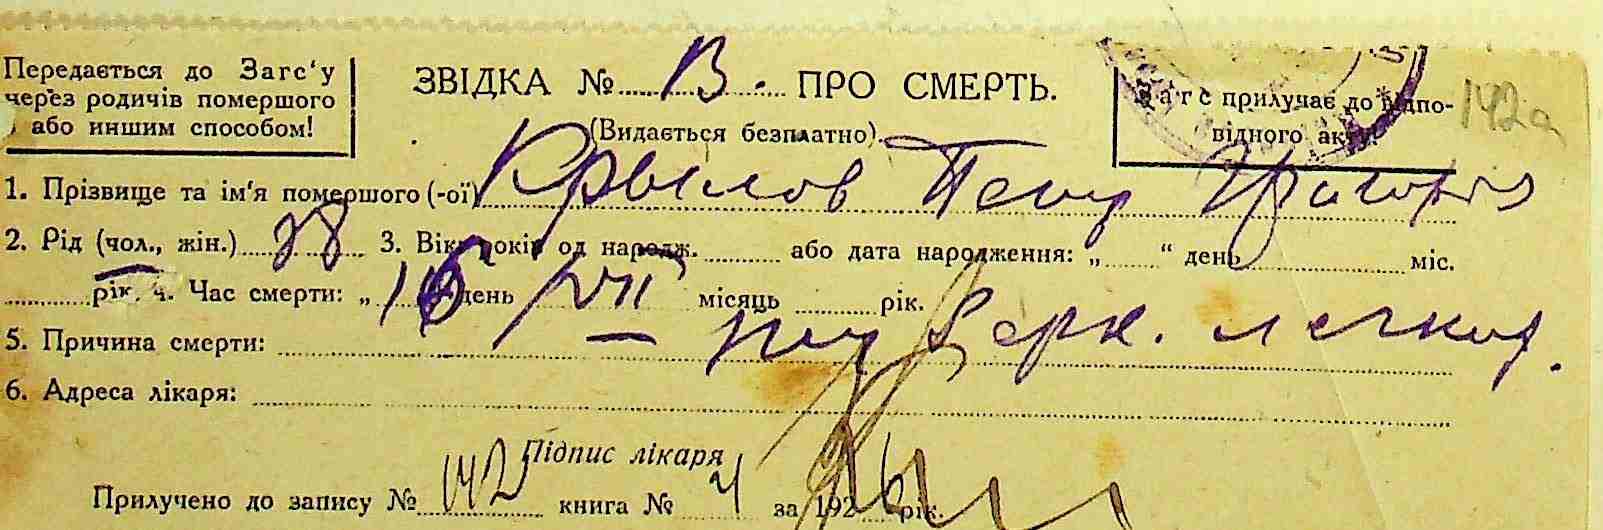 Передається до Загс‘у
через родичів помершого
або иншим способом!
ЗВІДКА № 13. ПРО СМЕРТЬ.
(Видається безплатно).
Загс прилучає до відпо-
відного акту!
142а
1. Прізвище та ім'я помершого (-ої) Крылов Петр Григор
2. Рід (чол., жін.) 38 3. Вік років од народж. або дата народження: „ “ день міс.
рік. 4. Час смерти: „ 16 день VII місяць рік.
5. Причина смерти: — туберк. легких.
6. Адреса лікаря:
Підпис лікаря
Прилучено до запису № 142 книга № 4 за 192 рік.